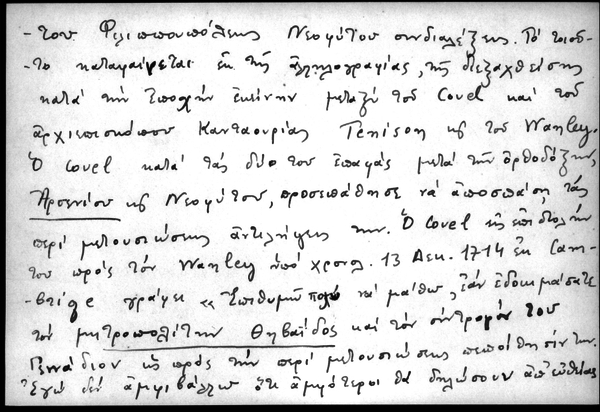 -του Φιλιππουπόλεως Νεοφύτου συνδιαλέξεις. Τό τοιοῦ-
-το καταφαίνεται ἐκ τῆς ἀλληλογραφίας, τῆς διεξαχθείσης
κατά τήν ἐποχήν ἐκείνην μεταξύ τοῦ Covel καί τοῦ
ἀρχιεπισκόπου Κανταουρίας Tenison κ τοῦ Wanley.
Ὁ Covel κατά τάς δύο του ἐπαφάς μετά τῶν ὀρθοδόξων,
Ἀρσενίου κ Νεοφύτου, προσεπάθησε νά ἀποσπάσῃ τάς
περί μετουσιώσεως ἀντιλήψεις των. Ὁ Covel εἰς ἐπιστολήν
του πρός τόν Wanley ὑπό χρονολ. 13 Δεκ. 1714 ἐκ Cam-
-bridge γράφει « Ἐπιθυμῶ πολύ νά μάθω, ἐάν ἐδοκιμάσατε
τόν μητροπολίτην Θηβαΐδος καί τόν σύντροφόν του
Γεννάδιον ὡς πρός τήν περί μετουσιώσεως πεποίθησίν των.
Ἐγώ δέν ἀμφιβάλλω ὅτι ἀμφότεροι θά δηλώσουν ἀπ' εὐθείας